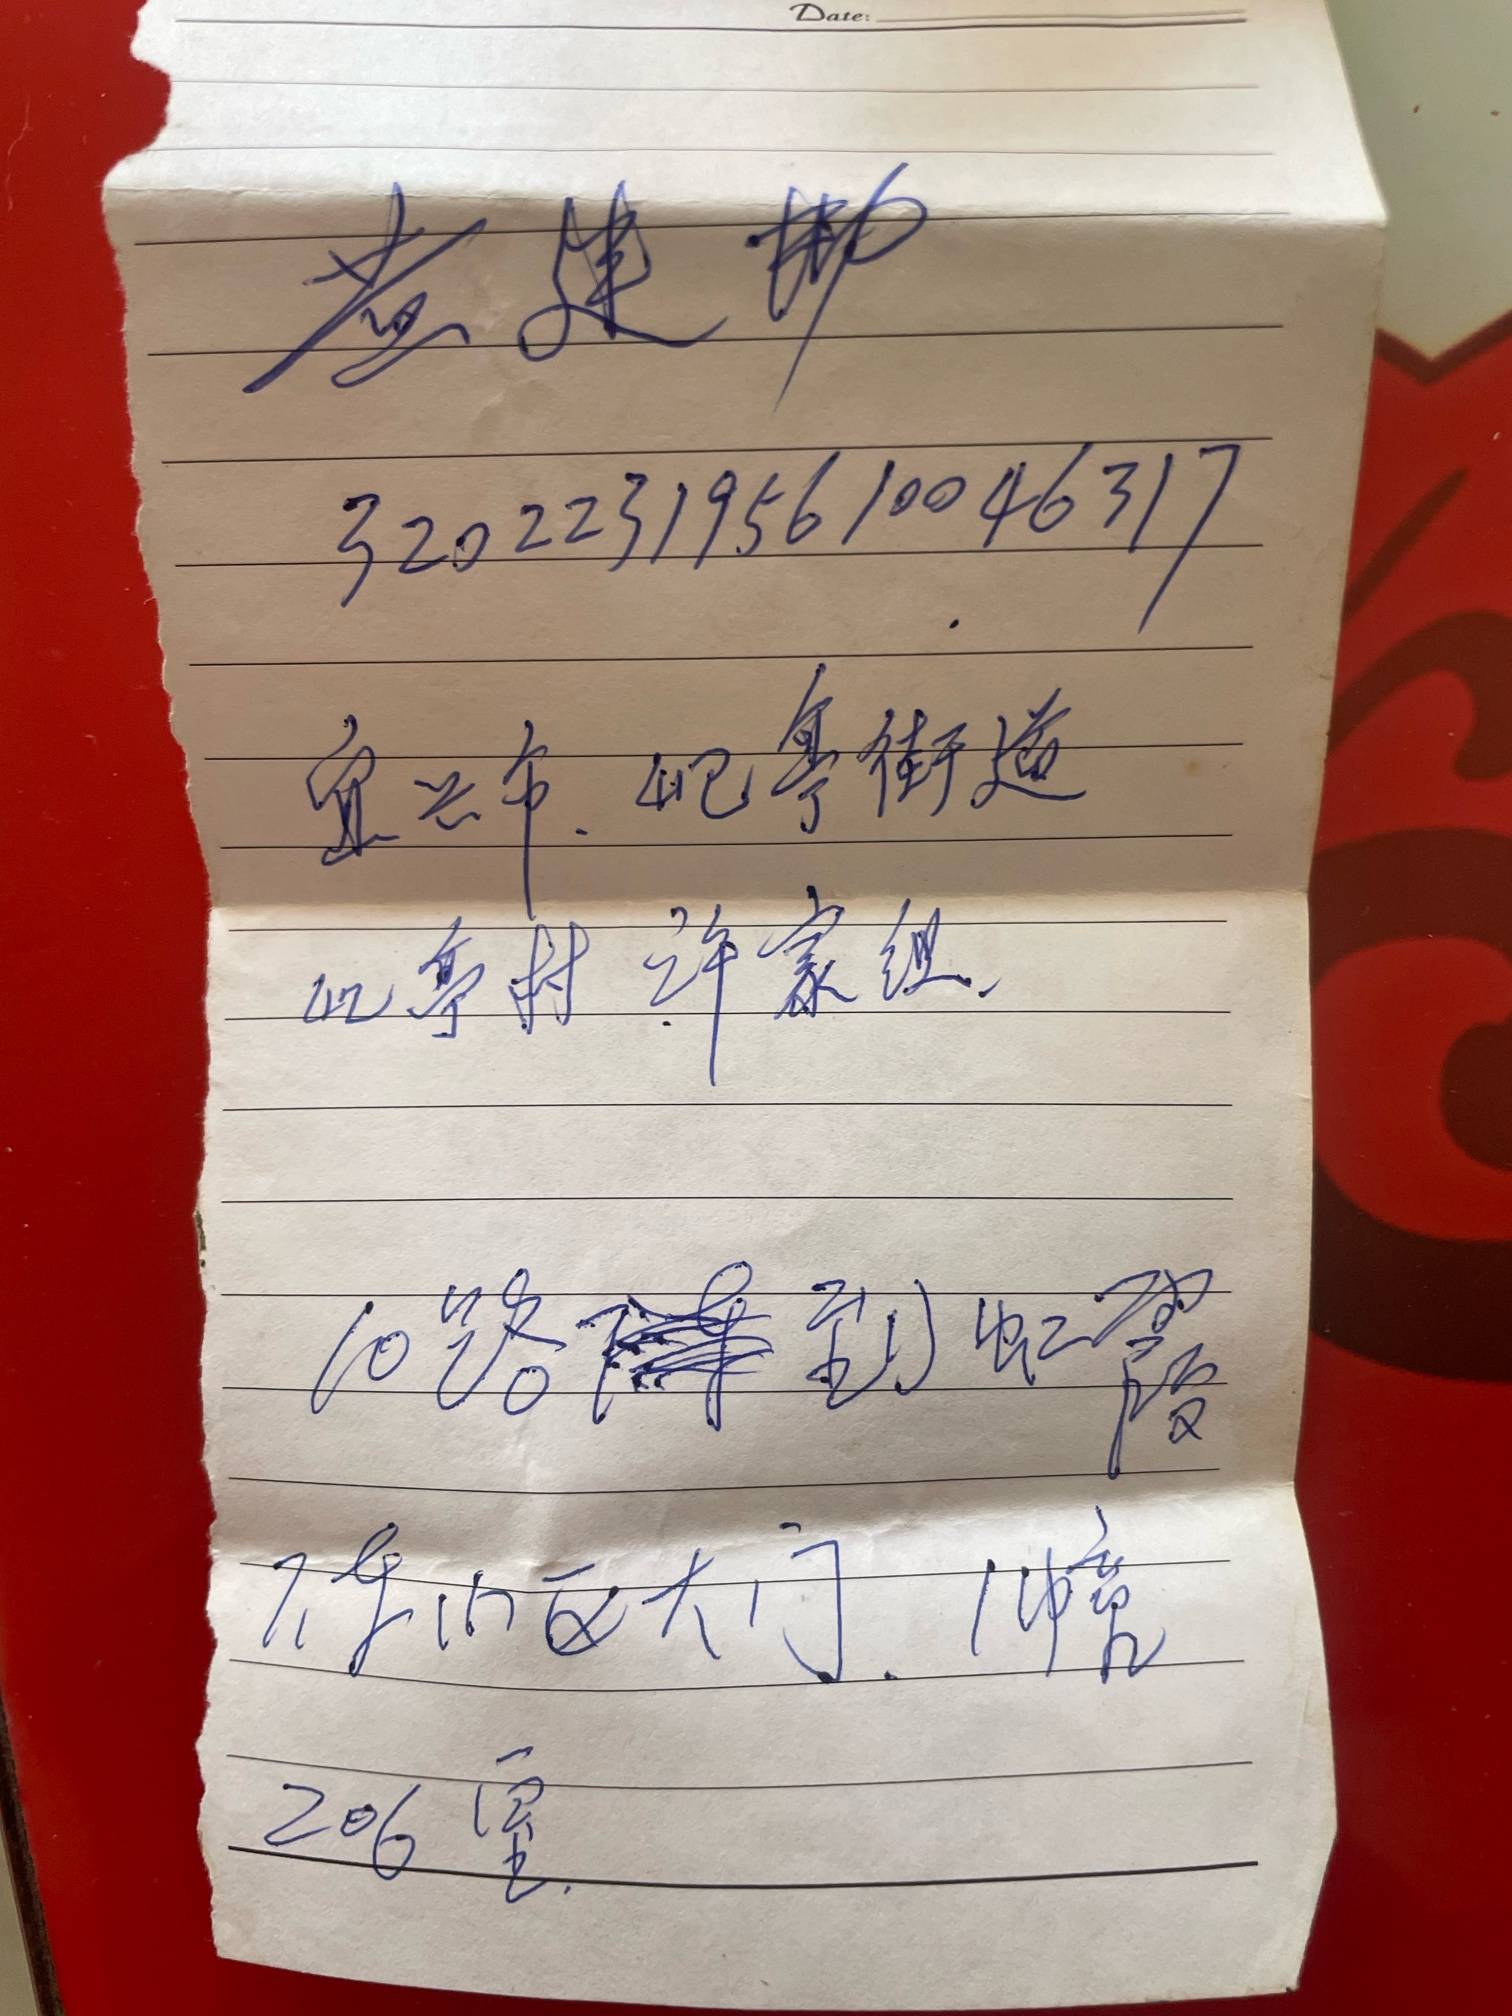 Date:
建
320223195610046317
宜兴市.屺亭街道
屺亭村 许家组.
10路 到虹霞
下车 大门.
206室.